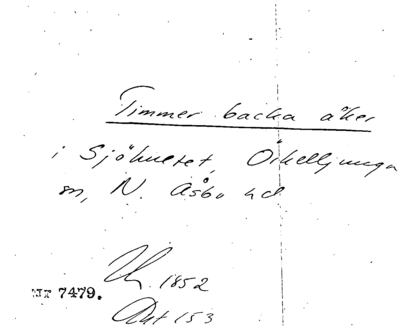 Timmer backa åker
i Sjöhuset, Örkelljunga
sn, N. Åsbo hd
1852
Nr 7479.
Akt 153